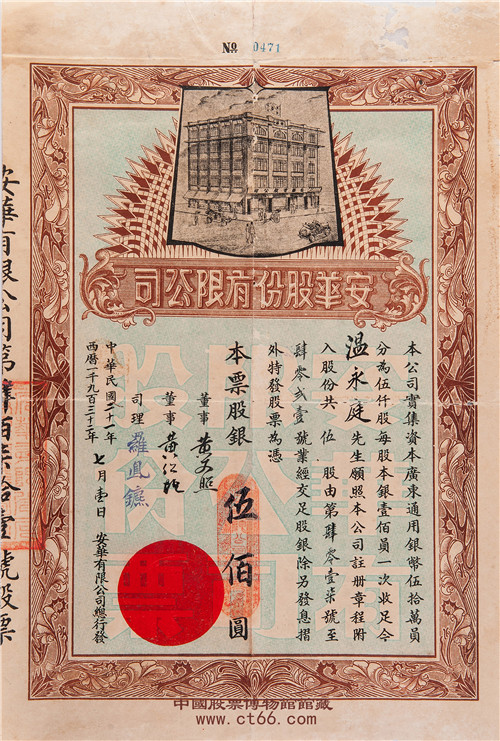 No 0471
安華股份有限公司
本公司實集資本廣東通用銀幣伍拾萬員
分為伍仟股每股本銀壹佰員一次收足今
溫永庭先生願照本公司註冊章程附
入股份共伍股由第肆零壹柒號至
肆零貳壹號業經交足股銀除另發息摺
外特發股票為憑
本票股銀伍佰圓
董事
董事
司理
中華民國二十一年
西曆一千九百三十二年
七月壹日
安華有限公司總行發
安華有限公司第肆百柒拾壹號股票
中國股票博物館館藏
www.ct66.com